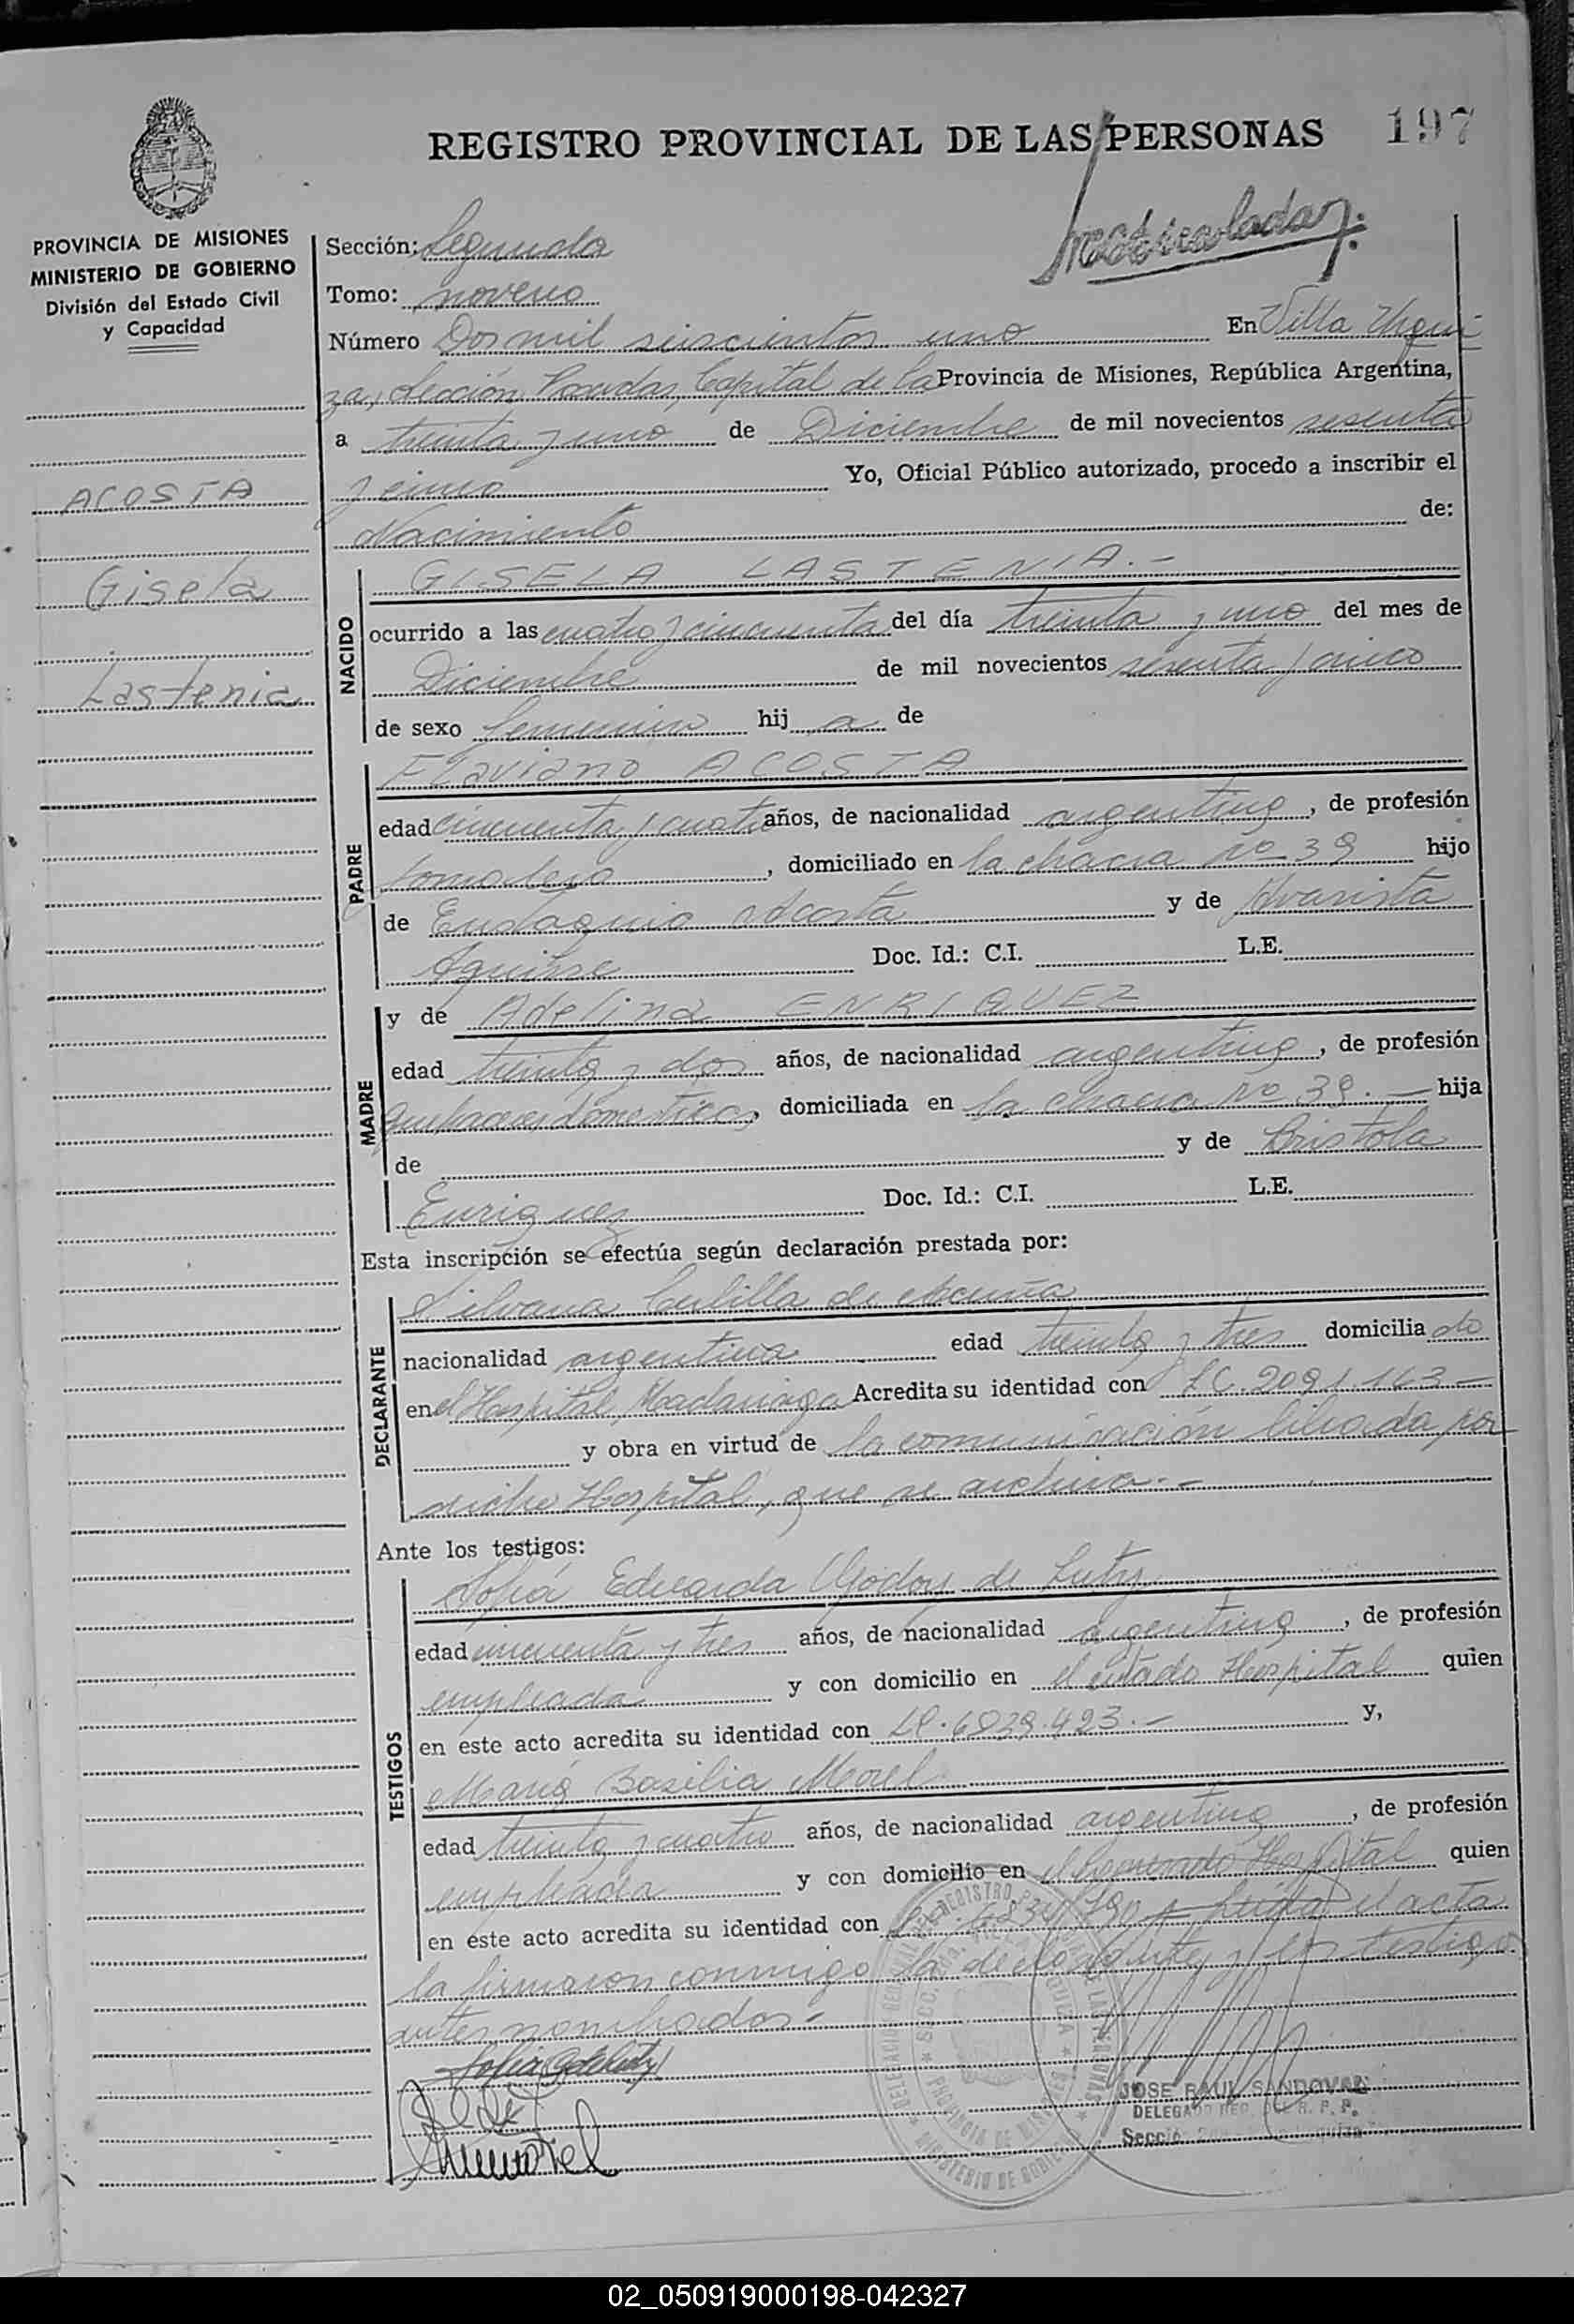 REGISTRO PROVINCIAL DE LAS PERSONAS 197
Matriculada
PROVINCIA DE MISIONES
MINISTERIO DE GOBIERNO
División del Estado Civil
y Capacidad
ACOSTA
Gisela
Lastenia
Sección: Segunda
Tomo: noveno
Número Dos mil seiscientos uno En Villa Urqui
za, Sección Posadas, Capital de la Provincia de Misiones, República Argentina,
a treinta y uno de Diciembre de mil novecientos sesenta
y cinco Yo, Oficial Público autorizado, procedo a inscribir el
Nacimiento de:
NACIDO
GISELA LASTENIA.-
ocurrido a las cuatro y cincuenta del día treinta y uno del mes de
Diciembre de mil novecientos sesenta y cinco
de sexo femenino hij a de
PADRE
Flaviano ACOSTA
edad cincuenta y cuatro años, de nacionalidad argentina, de profesión
, domiciliado en la chacra nº 39 hijo
de Eustaquio Acosta y de Evarista
Aguirre Doc. Id.: C.I. L.E.
MADRE
y de Adelina ENRIQUEZ
edad treinta y dos años, de nacionalidad argentina, de profesión
quehaceres domésticos, domiciliada en la chacra nº 39.- hija
de y de Cristola
Enriquez Doc. Id.: C.I. L.E.
Esta inscripción se efectúa según declaración prestada por:
DECLARANTE
Silvana de Acuña
nacionalidad argentina edad treinta y tres domicilia do
en el Hospital Madariaga Acredita su identidad con LC. 2091163-
y obra en virtud de la comunicación librada por
dicho Hospital, que se archiva.-
Ante los testigos:
TESTIGOS
Sofía Eduarda Godoy de Lutz
edad cincuenta y tres años, de nacionalidad argentina, de profesión
empleada y con domicilio en el citado Hospital quien
en este acto acredita su identidad con LC. 6839.423.- y,
María Basilia Morel
edad treinta y cuatro años, de nacionalidad argentina, de profesión
empleada y con domicilio en el Hospital quien
en este acto acredita su identidad con Leída el acta
la firmaron conmigo la declarante y los testigos
antes nombrados.-
JOSE RAUL SANDOVAL
DELEGADO REG. DEL R. P. P.
02_050919000198-042327